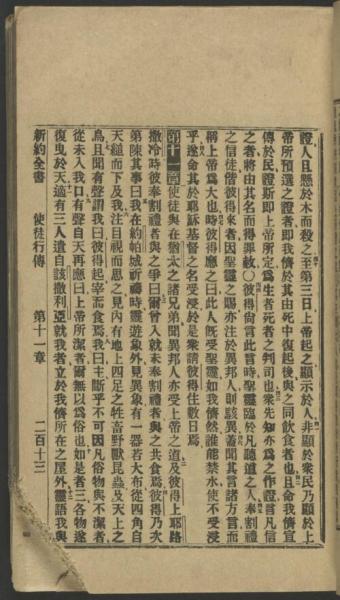 證人且懸於木而殺之至第三日上帝起之顯示於人非顯於衆民乃顯於上
帝所預選之證者即我儕於其由死中復起後與之同飲食者也且命我儕宣
傳於民證斯即上帝所定爲生者死者之判司也衆先知亦爲之作證言凡信
之者將由其名而得罪赦〇彼得尚言此言時聖靈臨於凡聽道之人奉割禮
之信徒偕彼得來者因聖靈之賜亦注於異邦人則駭異蓋聞其言諸方言而
稱上帝爲大也時彼得應之曰此人既受聖靈如我儕然誰能禁水使不受浸
乎遂命其於耶穌基督之名受浸於是衆請彼得住數日焉
第十一章使徒與在猶太之諸兄弟聞異邦人亦受上帝之道及彼得上耶路
撒冷時彼奉割禮者與之爭曰爾曾入就未奉割禮者與之共食焉彼得乃次
第陳其事曰我在約帕城祈禱時靈遊象外見異象有一器若大布從四角自
天縋而下及我注目視而思之見內有地上四足之牲畜野獸昆蟲及天上之
鳥且聞有聲謂我曰彼得起宰而食焉我曰主斷乎不可因凡俗物與不潔者
從未入我口有聲自天再應曰上帝所潔者爾無以爲俗也如是者三各物遂
復曳於天適有三人遣自該撒利亞就我者立於我儕所在之屋外靈語我與
新約全書 使徒行傳 第十一章 二百十三